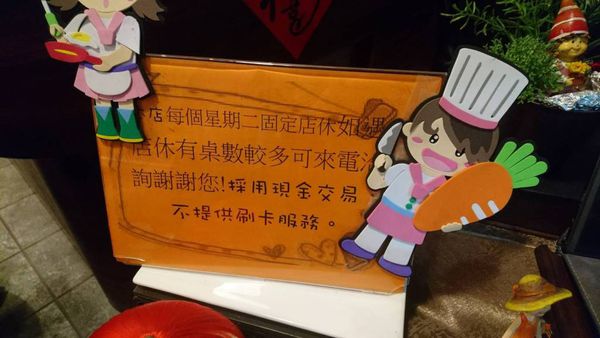 店每個星期二固定店休如遇
店休有桌數較多可來電洽
詢謝謝您!採用現金交易
不提供刷卡服務。